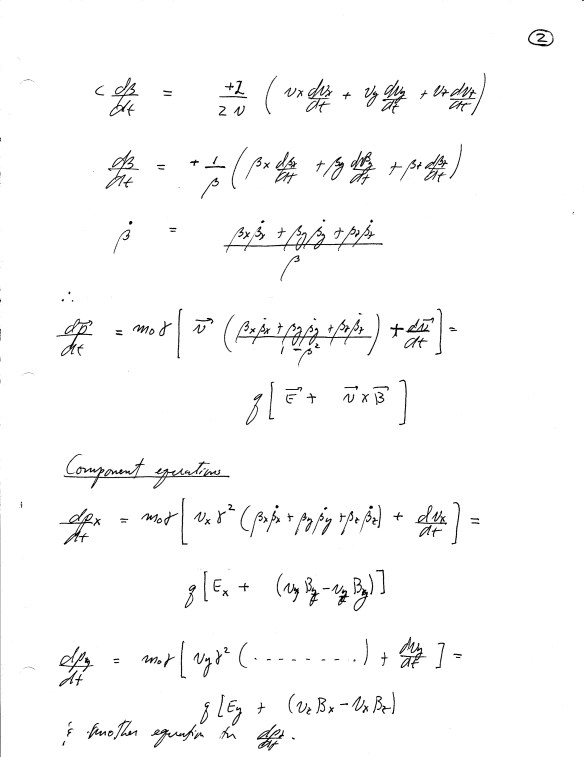 2
c dβ/dt = +2/2v ( vx dvx/dt + vy dvy/dt + vz dvz/dt )
dβ/dt = + 1/β ( βx dβx/dt + βy dβy/dt + βz dβz/dt )
β̇ = βxβ̇x + βyβ̇y + βzβ̇z / β
∴
dp⃗/dt = m₀γ [ v⃗ ( βxβ̇x + βyβ̇y + βzβ̇z / 1 - β² ) + dv⃗/dt ] =
q [ E⃗ + v⃗ x B⃗ ]
Component equations
dpx/dt = m₀γ [ vx γ² ( βxβ̇x + βyβ̇y + βzβ̇z ) + dvx/dt ] =
q [ Ex + (vy Bz - vz By) ]
dpy/dt = m₀γ [ vy γ² ( . . . . . . . . ) + dvy/dt ] =
q [ Ey + (vz Bx - vx Bz) ]
& another equation for dpz/dt .